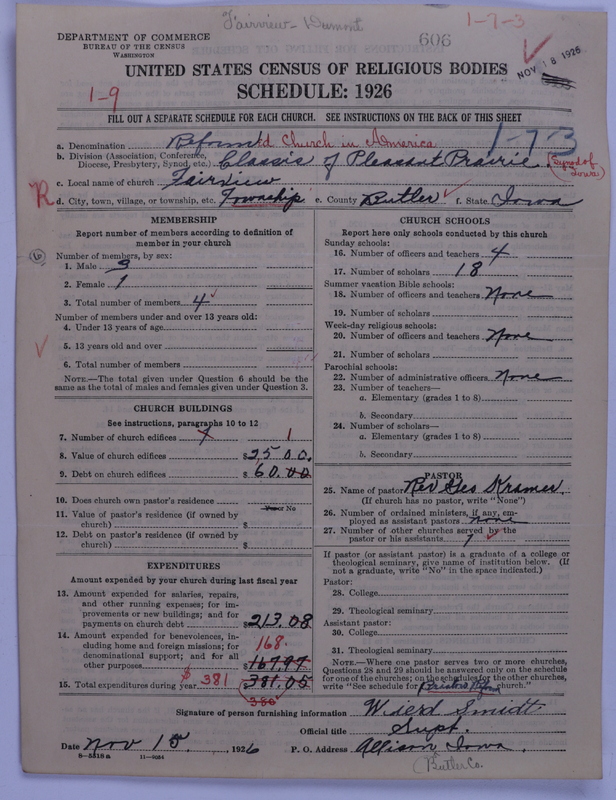 Fairview - Dumont
1-7-3
DEPARTMENT OF COMMERCE
BUREAU OF THE CENSUS
WASHINGTON
606
NOV 18 1926
UNITED STATES CENSUS OF RELIGIOUS BODIES
SCHEDULE: 1926
1-9
FILL OUT A SEPARATE SCHEDULE FOR EACH CHURCH. SEE INSTRUCTIONS ON THE BACK OF THIS SHEET
1-7-3
a. Denomination Reformed Church in America
b. Division (Association, Conference, Diocese, Presbytery, Synod, etc.) Classis of Pleasant Prairie (Synod of Iowa)
c. Local name of church Fairview
R d. City, town, village, or township, etc. Township e. County Butler f. State Iowa
MEMBERSHIP
Report number of members according to definition of member in your church
Number of members, by sex:
1. Male 3
2. Female 1
3. Total number of members 4
Number of members under and over 13 years old:
4. Under 13 years of age
5. 13 years old and over
6. Total number of members
NOTE.—The total given under Question 6 should be the same as the total of males and females given under Question 3.
CHURCH BUILDINGS
See instructions, paragraphs 10 to 12
7. Number of church edifices 1 1
8. Value of church edifices $2,500.
9. Debt on church edifices $60.00
10. Does church own pastor's residence
Yes or No
11. Value of pastor's residence (if owned by church) $
12. Debt on pastor's residence (if owned by church) $
EXPENDITURES
Amount expended by your church during last fiscal year
13. Amount expended for salaries, repairs, and other running expenses; for improvements or new buildings; and for payments on church debt $213.08
14. Amount expended for benevolences, including home and foreign missions; for denominational support; and for all other purposes 168. $167.97
15. Total expenditures during year $381 $381.05
380
CHURCH SCHOOLS
Report here only schools conducted by this church
Sunday schools:
16. Number of officers and teachers 4
17. Number of scholars 18
Summer vacation Bible schools:
18. Number of officers and teachers None
19. Number of scholars
Week-day religious schools:
20. Number of officers and teachers None
21. Number of scholars
Parochial schools:
22. Number of administrative officers None
23. Number of teachers—
a. Elementary (grades 1 to 8)
b. Secondary
24. Number of scholars—
a. Elementary (grades 1 to 8)
b. Secondary
PASTOR
25. Name of pastor Rev Geo Kramer
(If church has no pastor, write "None")
26. Number of ordained ministers, if any, employed as assistant pastors none
27. Number of other churches served by the pastor or his assistants 1
If pastor (or assistant pastor) is a graduate of a college or theological seminary, give name of institution below. (If not a graduate, write "No" in the space indicated.)
Pastor:
28. College
29. Theological seminary
Assistant pastor:
30. College
31. Theological seminary
NOTE.—Where one pastor serves two or more churches, Questions 28 and 29 should be answered only on the schedule for one of the churches; on the schedules for the other churches, write "See schedule for church."
Signature of person furnishing information Wierd Smidt
Official title Supt.
Date Nov 15, 1926 P. O. Address Allison, Iowa
8-5518 a 11-9034
(Butler Co.